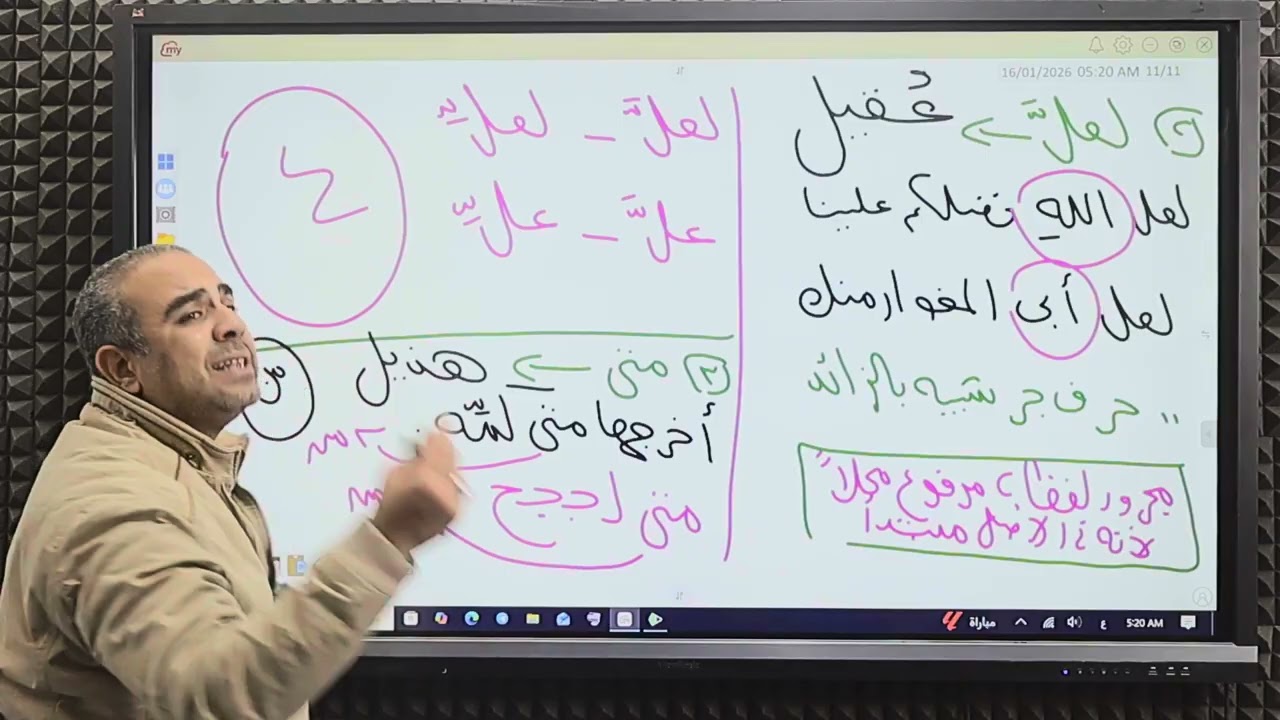 my
16/01/2026 05:20 AM 11/11
٢ لعلَّ ← عُقيل
لعل اللهِ فضلكم علينا
لعل أبى المغوار منك
" حرف جر شبيه بالزائد
مجرور لفظاً مرفوع محلاً
لأنه فى الأصل مبتدأ
لعلَّ - لعلِّ
علَّ - علِّ
٤
٣ متى ← هذيل
أخرجها متى كمِّه
متى لجج
مباراة
ع
5:20 AM
ViewSonic